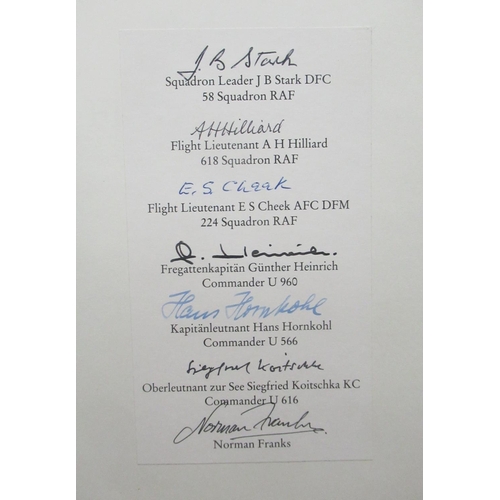 J. B Stark
Squadron Leader J B Stark DFC
58 Squadron RAF
A H Hilliard
Flight Lieutenant A H Hilliard
618 Squadron RAF
E. S Cheek
Flight Lieutenant E S Cheek AFC DFM
224 Squadron RAF
G. Heinrich.
Fregattenkapitän Günther Heinrich
Commander U 960
Hans Hornkohl
Kapitänleutnant Hans Hornkohl
Commander U 566
Siegfried Koitschka
Oberleutnant zur See Siegfried Koitschka KC
Commander U 616
Norman Franks.
Norman Franks